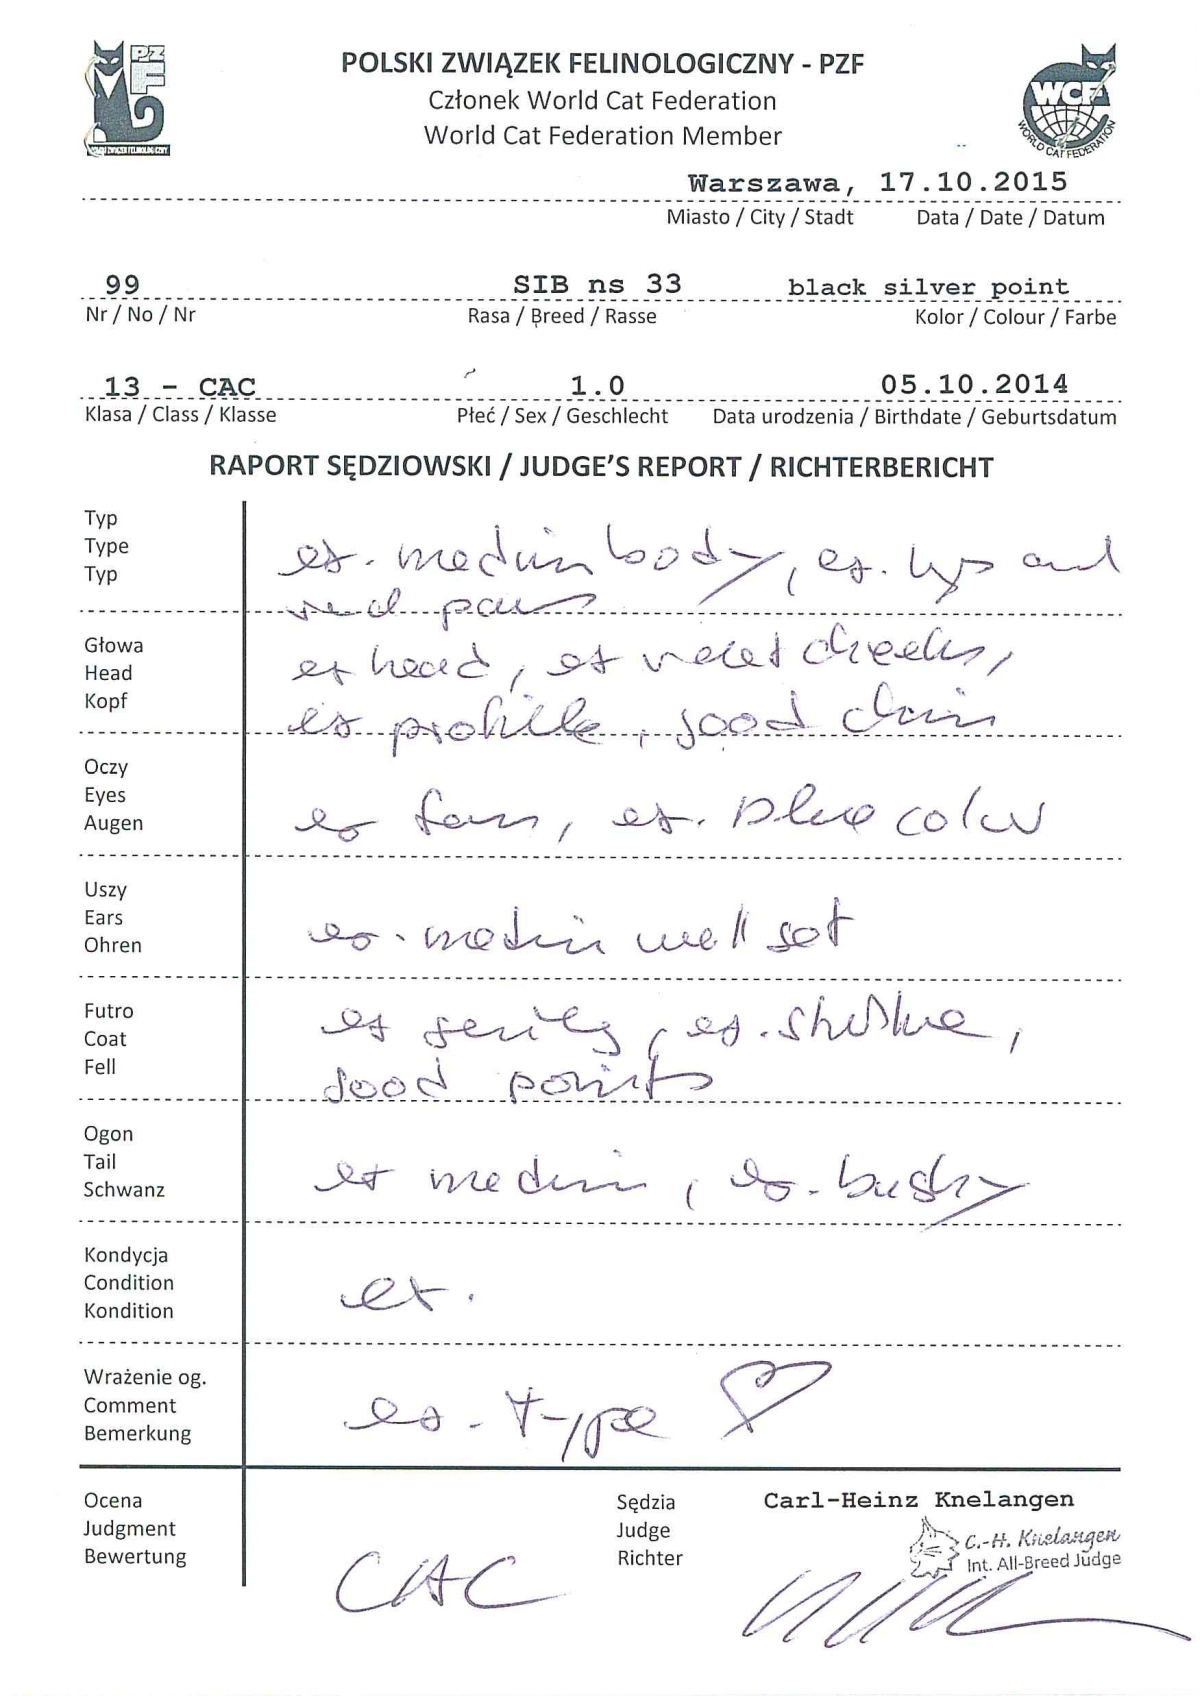 PZ
F
POLSKI ZWIĄZEK FELINOLOGICZNY - PZF
Członek World Cat Federation
World Cat Federation Member
WCF
WORLD CAT FEDERATION
Warszawa, 17.10.2015
Miasto / City / Stadt Data / Date / Datum
99 SIB ns 33 black silver point
Nr / No / Nr Rasa / Breed / Rasse Kolor / Colour / Farbe
13 - CAC 1.0 05.10.2014
Klasa / Class / Klasse Płeć / Sex / Geschlecht Data urodzenia / Birthdate / Geburtsdatum
RAPORT SĘDZIOWSKI / JUDGE'S REPORT / RICHTERBERICHT
Typ
Type
Typ
ex. medium body, ex. legs and
paws
Głowa
Head
Kopf
ex head, ex cheeks,
ex profile, good chin
Oczy
Eyes
Augen
ex form, ex. blue color
Uszy
Ears
Ohren
ex. medium well set
Futro
Coat
Fell
ex ex.
good points
Ogon
Tail
Schwanz
ex medium, ex. bushy
Kondycja
Condition
Kondition
ex.
Wrażenie og.
Comment
Bemerkung
ex. type
Ocena
Judgment
Bewertung
CAC
Sędzia
Judge
Richter
Carl-Heinz Knelangen
C.-H. Knelangen
Int. All-Breed Judge